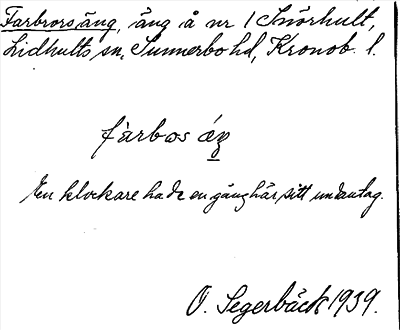 Farbrorsäng, äng å nr 1 Snörhult,
Lidhults sn, Sunnerbo hd, Kronob. l.
fàrbos ág
En klockare hade en gång här sitt undantag.
O. Segerbäck 1939.